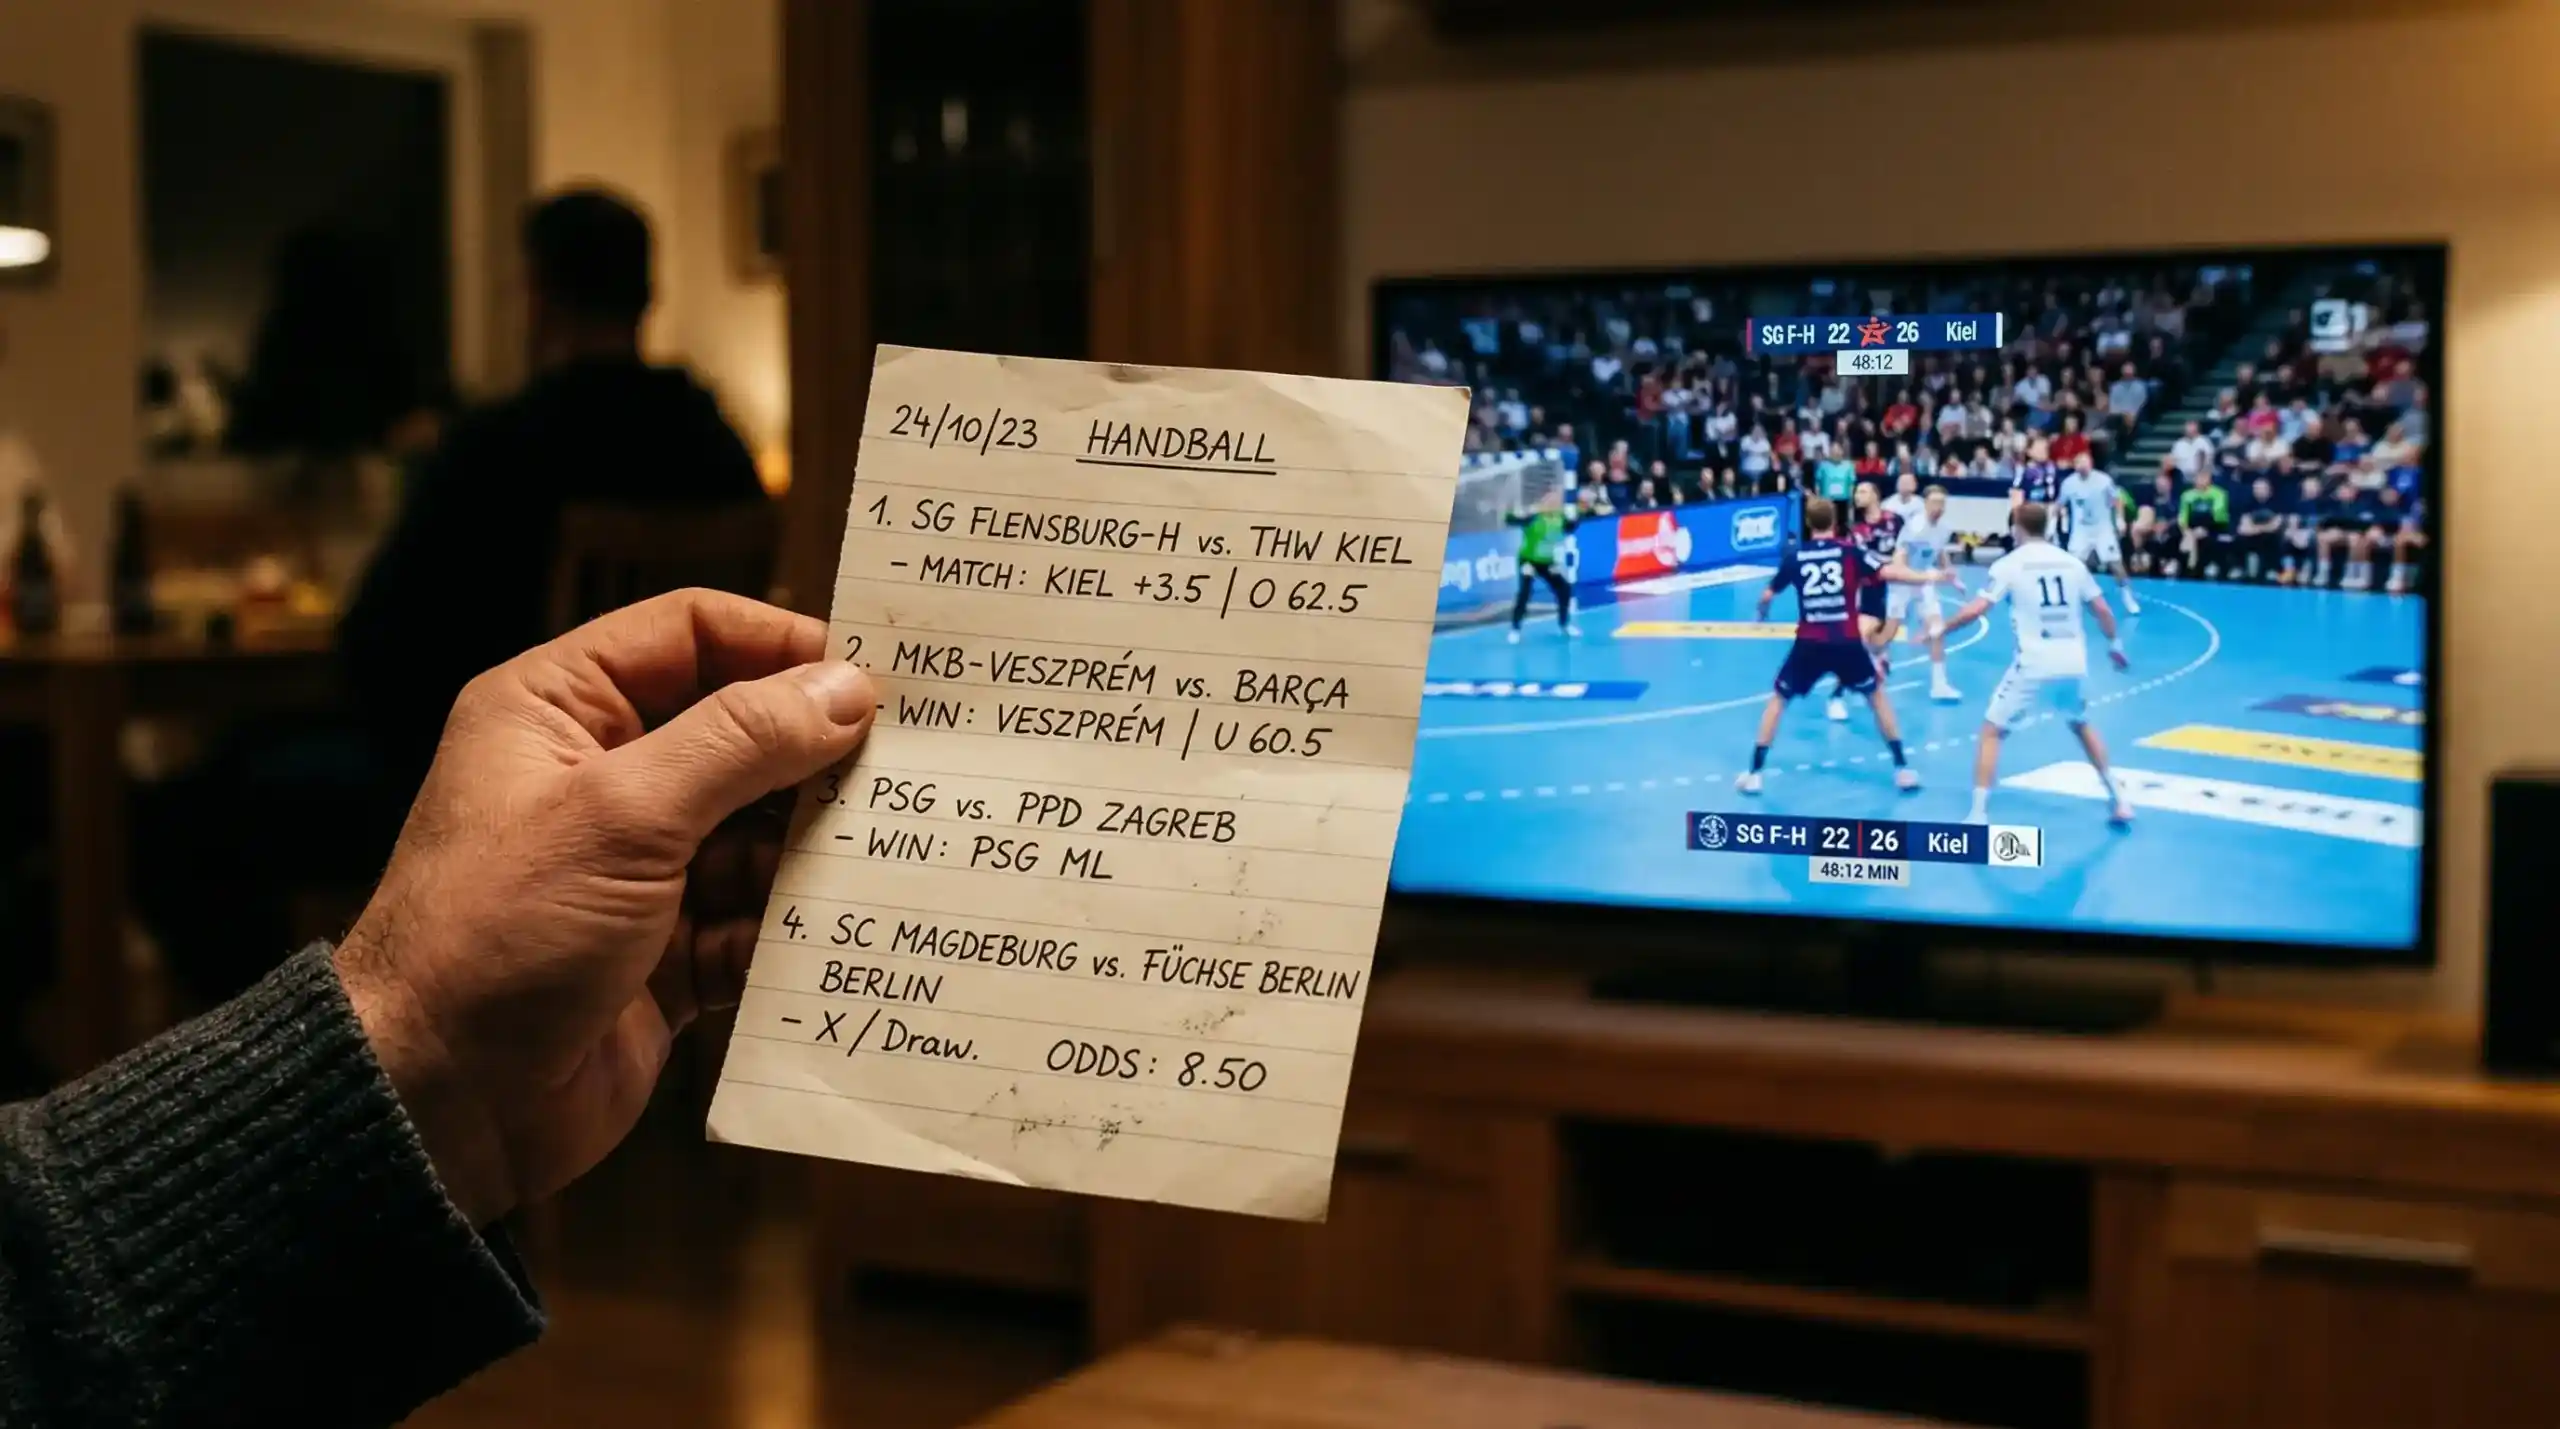 24/10/23 HANDBALL
1. SG FLENSBURG-H vs. THW KIEL
- MATCH: KIEL +3.5 | O 62.5
2. MKB-VESZPRÉM vs. BARÇA
- WIN: VESZPRÉM | U 60.5
3. PSG vs. PPD ZAGREB
- WIN: PSG ML
4. SC MAGDEBURG vs. FÜCHSE BERLIN
BERLIN
- X / Draw. ODDS: 8.50
SG F-H 22 26 Kiel
48:12
23
11
SG F-H 22 26 Kiel
48:12 MIN